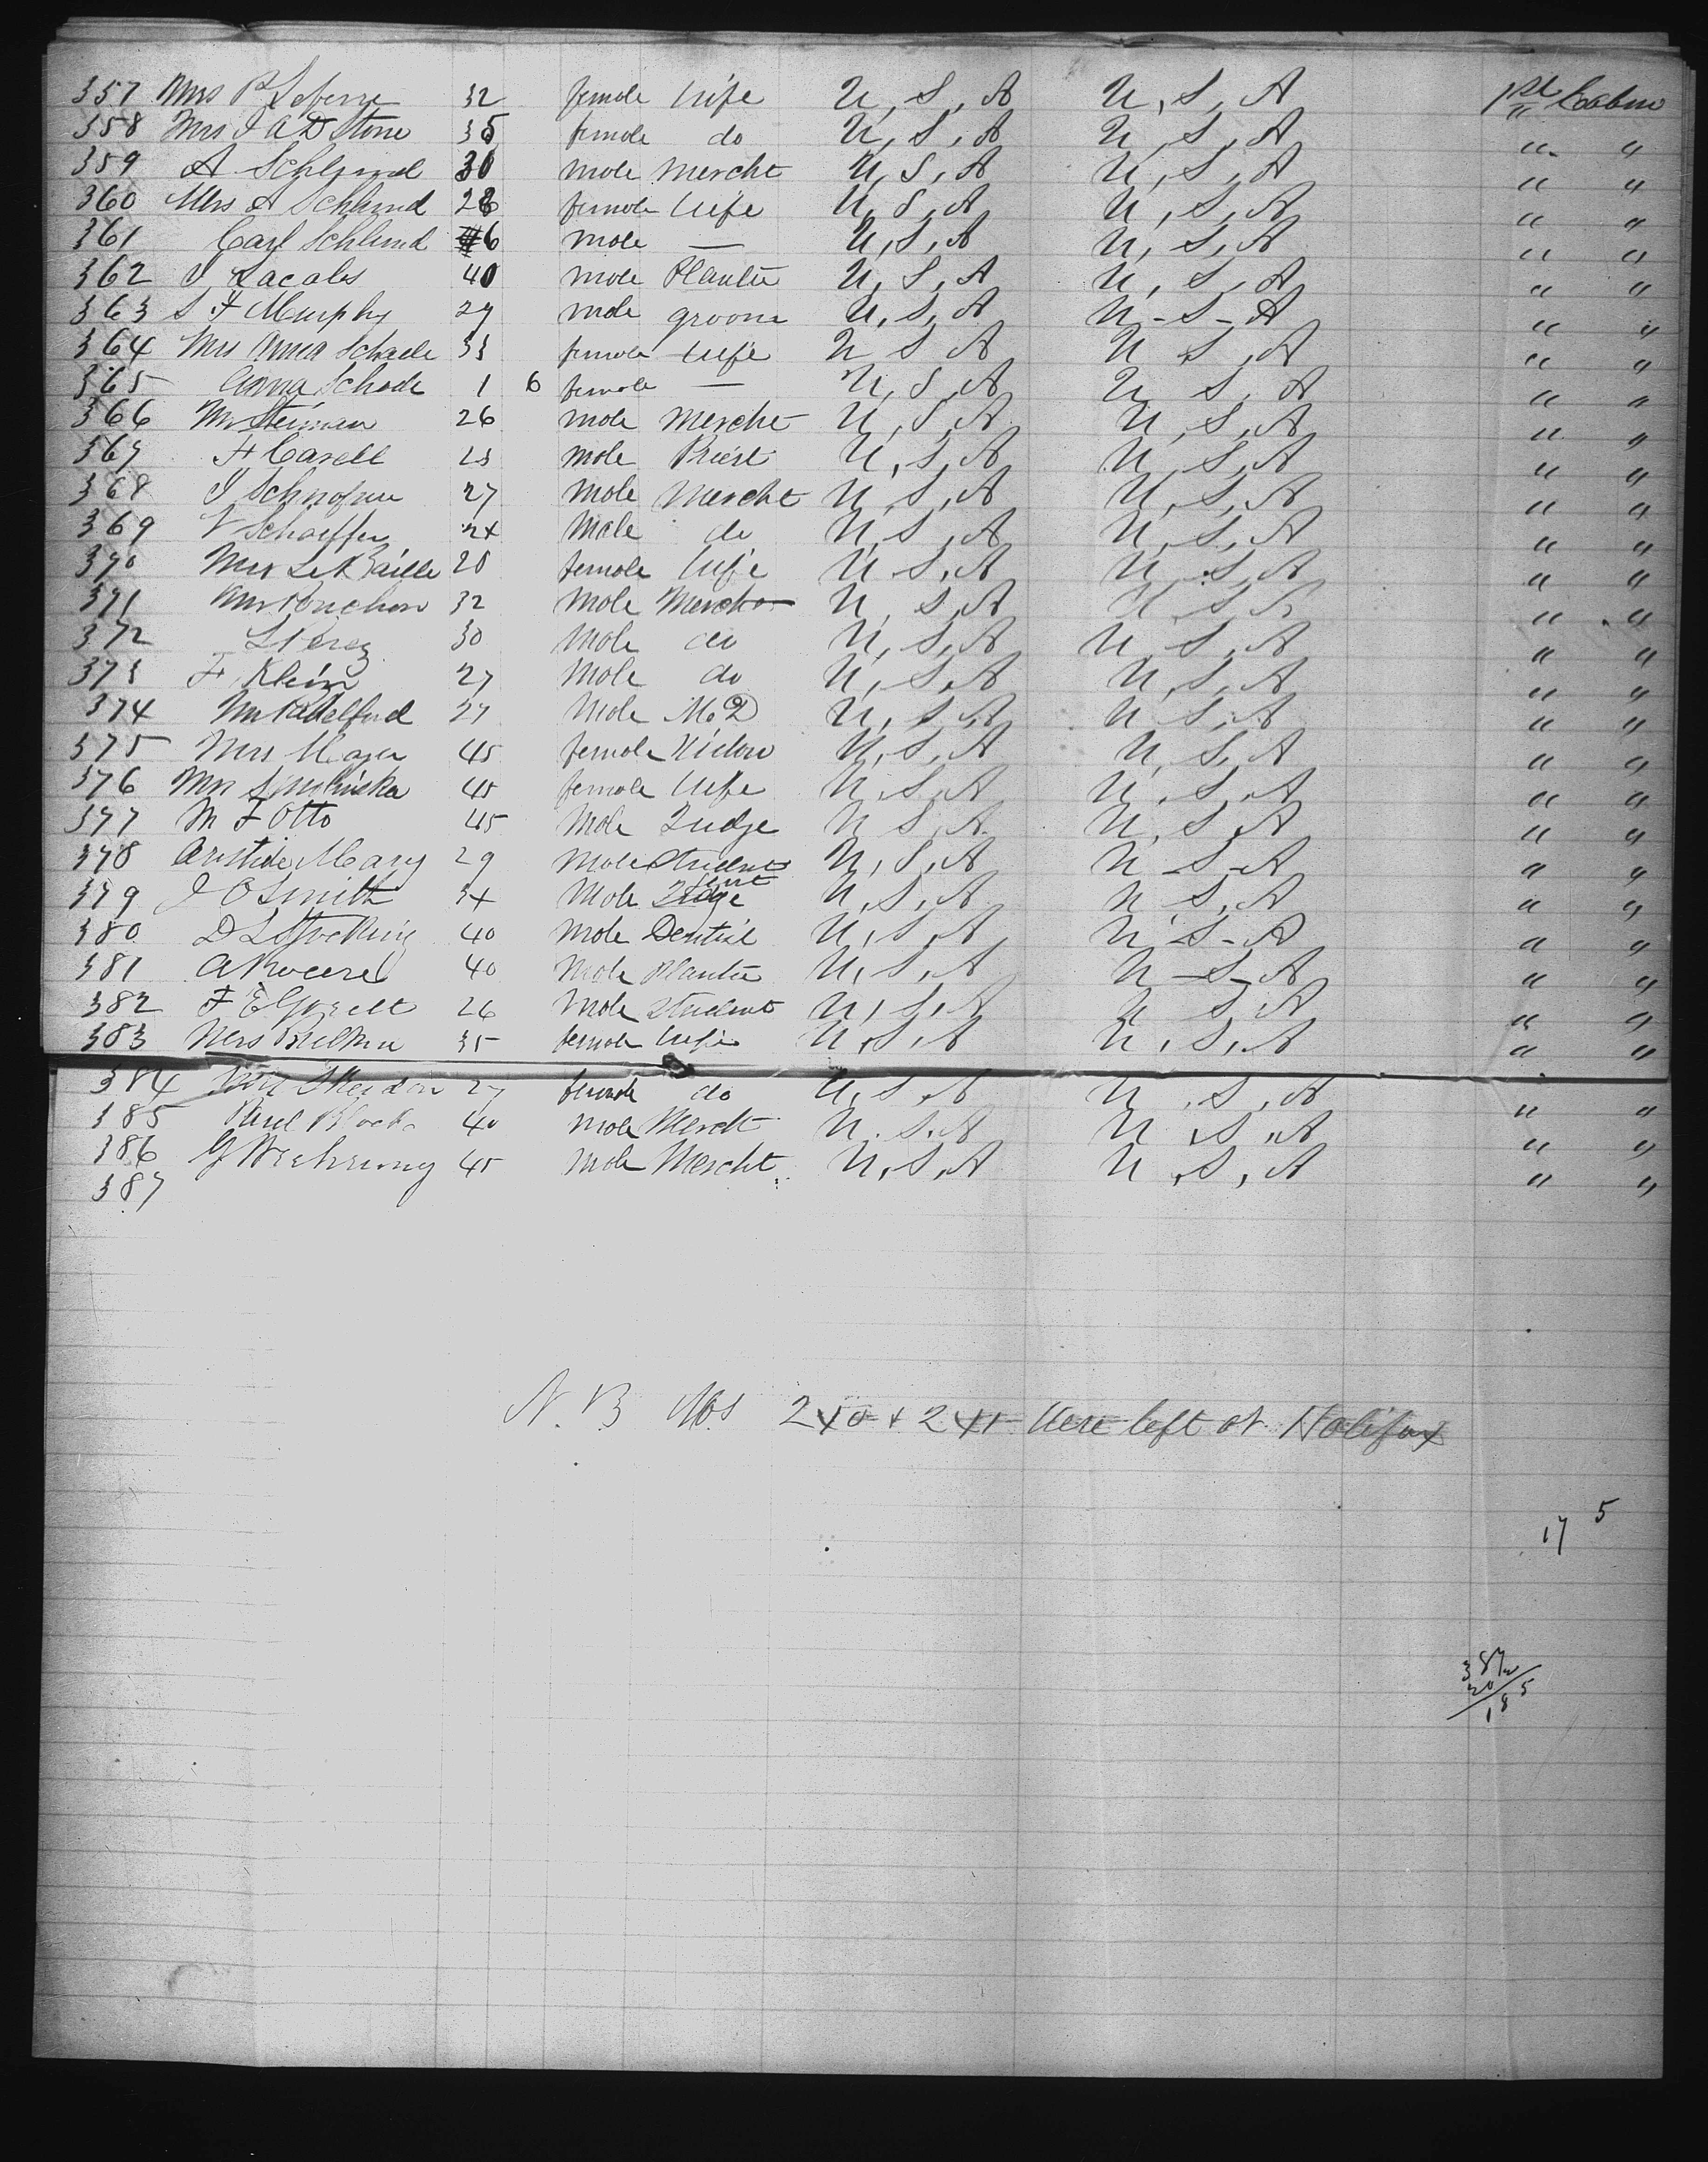 357 Mrs P Lefevre 32 female Wife U, S, A U, S, A 1st Cabin
358 Mrs J A D Stone 35 female do U, S, A U, S, A " "
359 A Schlund 30 male Mercht U, S, A U, S, A " "
360 Mrs A Schlund 28 female Wife U, S, A U, S, A " "
361 Carl Schlund 6 male — U, S, A U, S, A " "
362 J Lacales 40 male Planter U, S, A U, S, A " "
363 S F Murphy 27 male groom U, S, A U - S - A " "
364 Mrs Anna Schade 33 female wife U S A U S, A " "
365 Anna Schade 1 6 female — U, S, A U S, A " "
366 Mr Steiman 26 male Mercht U, S, A U, S, A " "
367 F Carell 23 male Priest U, S, A U, S, A " "
368 J 27 male Mercht U, S, A U, S, A " "
369 V Schaeffer 24 Male do U, S, A U, S, A " "
370 Mrs Le 28 female Wife U S, A U, S, A " "
371 Mr Ponchon 32 Male Mercht U, S, A U S A " "
372 L Perez 30 Male do U, S, A U, S, A " "
373 F Klein 27 Male do U, S, A U, S, A " "
374 Mr 27 Male M.D U, S, A U S, A " "
375 Mrs Mayer 45 female Widow U, S, A U, S, A " "
376 Mrs 45 female Wife U, S, A U, S, A " "
377 M F Otto 45 Male Judge U S, A U, S, A " "
378 Aristide Mary 29 Male Student U, S, A U - S - A " "
379 J O Smith 34 Male U, S, A U S, A " "
380 D L Stocking 40 Male Dentist U, S, A U - S - A " "
381 A 40 Male Planter U, S, A U - S - A " "
382 F E 26 Male Student U, S, A U S, A " "
383 Mrs 35 female Wife U, S, A U, S, A " "
384 Sheridan 27 female do U, S, A U, S, A " "
385 Paul Block 40 male Mercht U, S, A U, S, A " "
386 G 45 male Mercht U, S, A U, S, A " "
387 " "
N. B Nos 240 + 241 Were left at Halifax
17 5
387
20
185